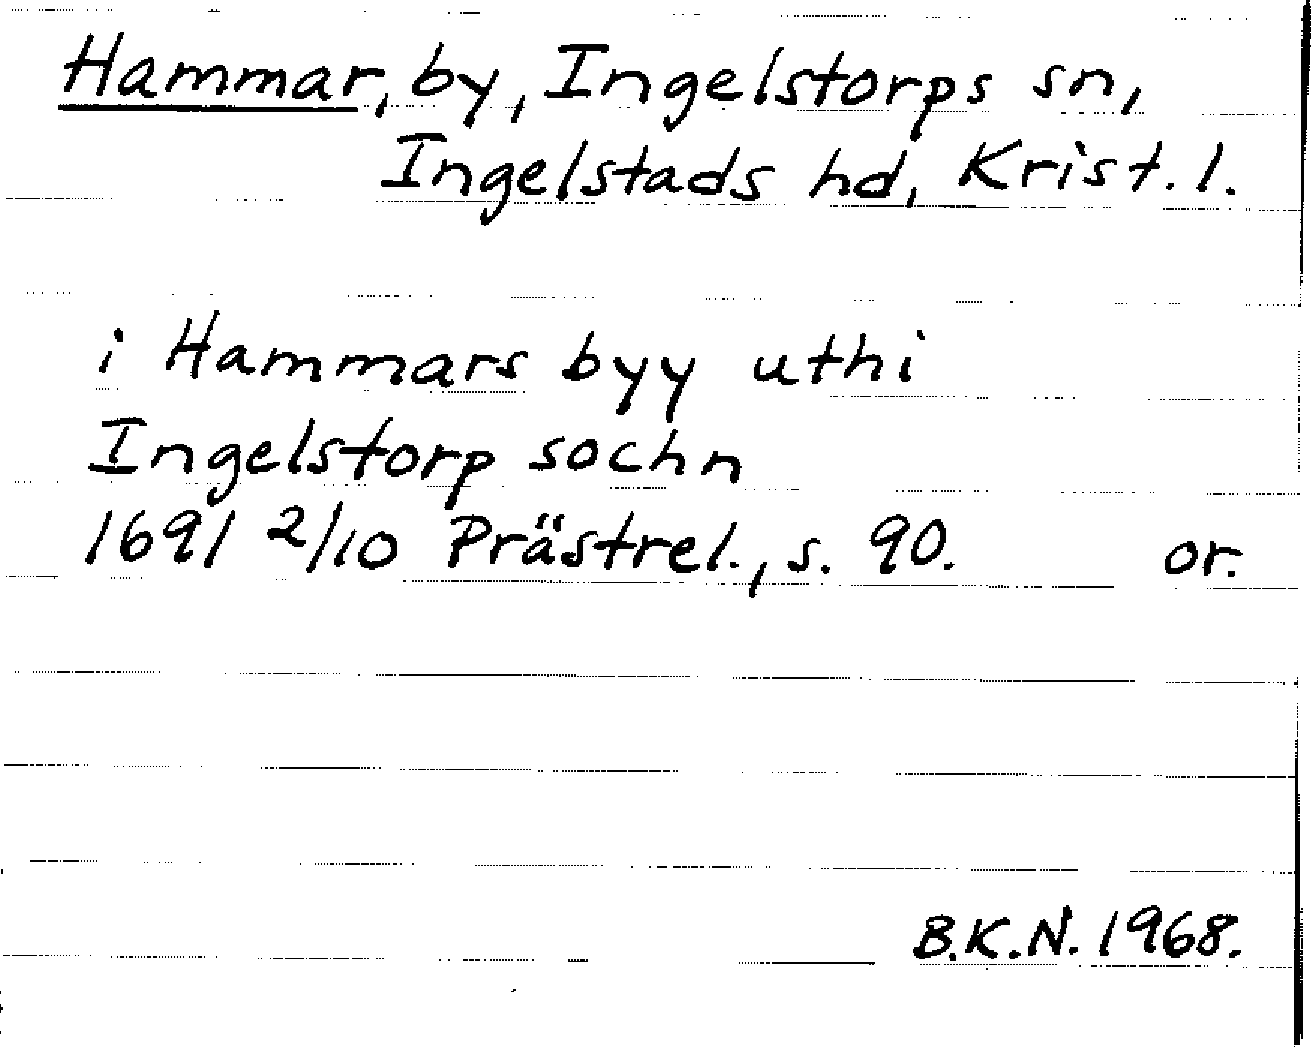 Hammar, by, Ingelstorps sn,
Ingelstads hd, Krist. l.
i Hammars byy uthi
Ingelstorp sochn
1691 2/10 Prästrel., s. 90. or.
B.K.N. 1968.